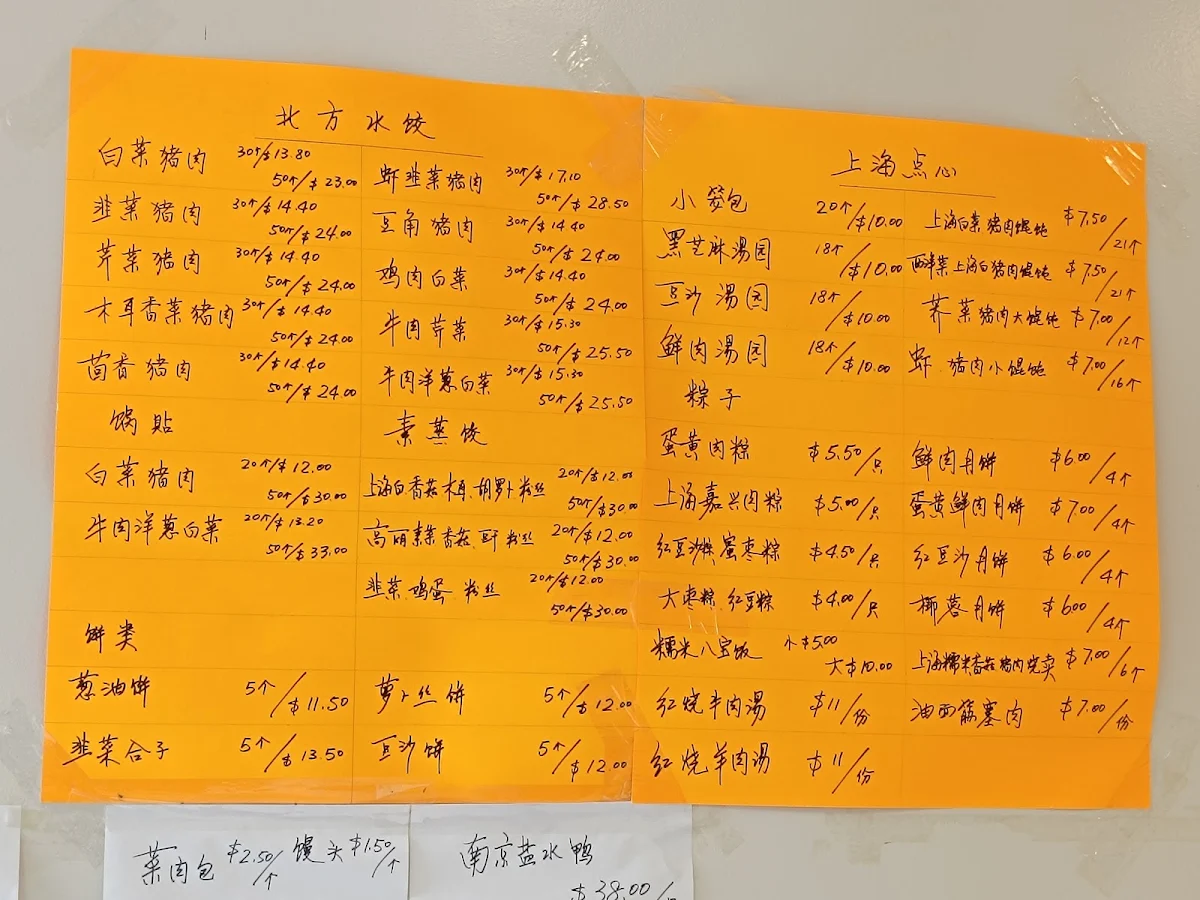 北方水饺
白菜猪肉 30个/$13.80
50个/$23.00
韭菜猪肉 30个/$14.40
50个/$24.00
芹菜猪肉 30个/$14.40
50个/$24.00
木耳香菜猪肉 30个/$14.40
50个/$24.00
茴香猪肉 30个/$14.40
50个/$24.00
锅贴
白菜猪肉 20个/$12.00
50个/$30.00
牛肉洋葱白菜 20个/$13.20
50个/$33.00
饼类
葱油饼 5个/$11.50
韭菜合子 5个/$13.50
虾韭菜猪肉 30个/$17.10
50个/$28.50
豆角猪肉 30个/$14.40
50个/$24.00
鸡肉白菜 30个/$14.40
50个/$24.00
牛肉芹菜 30个/$15.30
50个/$25.50
牛肉洋葱白菜 30个/$15.30
50个/$25.50
素蒸饺
上海白香菇木耳.胡萝卜粉丝 20个/$12.00
50个/$30.00
高丽素香菇.豆干粉丝 20个/$12.00
50个/$30.00
韭菜.鸡蛋.粉丝 20个/$12.00
50个/$30.00
萝卜丝饼 5个/$12.00
豆沙饼 5个/$12.00
上海点心
小笼包 20个/$10.00
黑芝麻汤园 18个/$10.00
豆沙汤园 18个/$10.00
鲜肉汤园 18个/$10.00
粽子
蛋黄肉粽 $5.50/只
上海嘉兴肉粽 $5.00/只
红豆沙粽.蜜枣粽 $4.50/只
大枣粽.红豆粽 $4.00/只
糯米八宝饭 小$5.00
大$10.00
红烧牛肉汤 $11/份
红烧羊肉汤 $11/份
上海白菜猪肉馄饨 $7.50/21个
西洋菜上海白猪肉馄饨 $7.50/21个
荠菜猪肉大馄饨 $7.00/12个
虾.猪肉小馄饨 $7.00/16个
鲜肉月饼 $6.00/4个
蛋黄鲜肉月饼 $7.00/4个
红豆沙月饼 $6.00/4个
椰蓉月饼 $6.00/4个
上海糯米香菇猪肉烧卖 $7.00/6个
油面筋塞肉 $7.00/份
菜肉包 $2.50/个 馒头 $1.50/个
南京盐水鸭
$38.00/